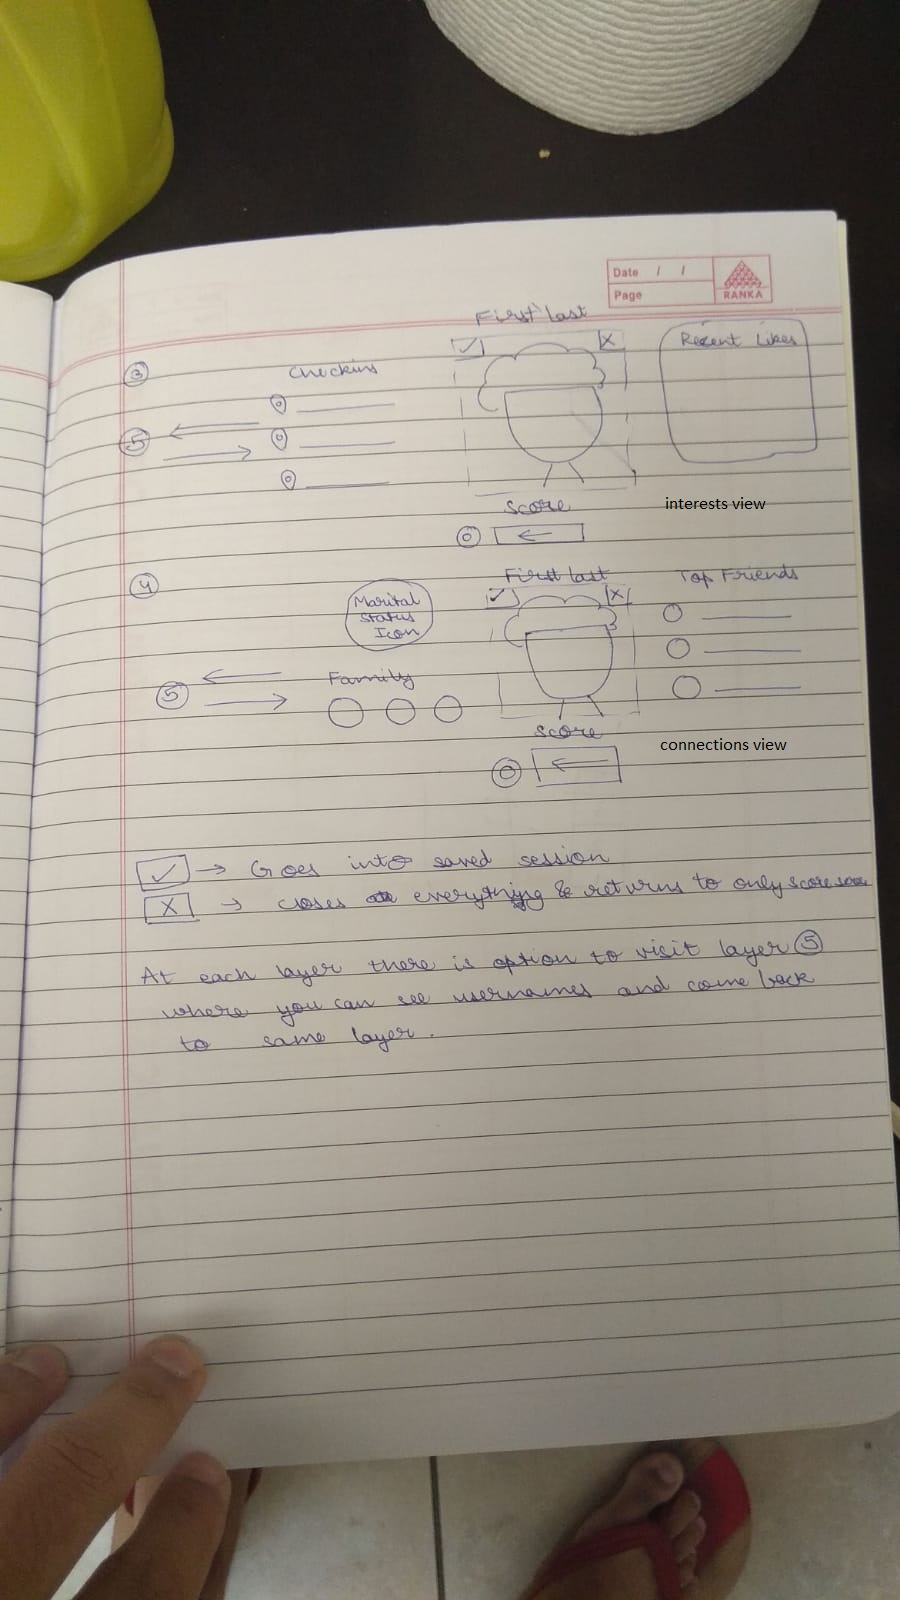 Date / /
Page
RANKA
First last
③ Checkins
Recent Likes
✓ X
⑤
Score
interests view
④
First last
Top Friends
Marital
Status
Icon
✓ X
⑤
Family
Score
connections view
✓ → Goes into saved session
X → closes everything & returns to only score
At each layer there is option to visit layer ⑤
where you can see usernames and come back
to same layer.